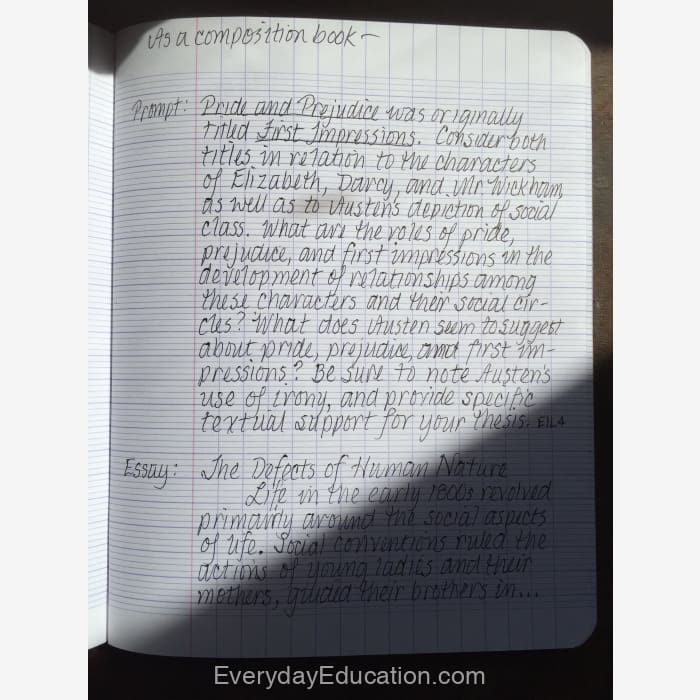 As a composition book –
Prompt: Pride and Prejudice was originally
titled First Impressions. Consider both
titles in relation to the characters
of Elizabeth, Darcy, and Mr Wickham,
as well as to Austen's depiction of social
class. What are the roles of pride,
prejudice, and first impressions in the
development of relationships among
these characters and their social cir-
cles? What does Austen seem to suggest
about pride, prejudice, and first im-
pressions? Be sure to note Austen's
use of irony, and provide specific
textual support for your thesis. EIL4
Essay: The Defects of Human Nature
Life in the early 1800s revolved
primarily around the social aspects
of life. Social conventions ruled the
actions of young ladies and their
mothers, guided their brothers in...
EverydayEducation.com